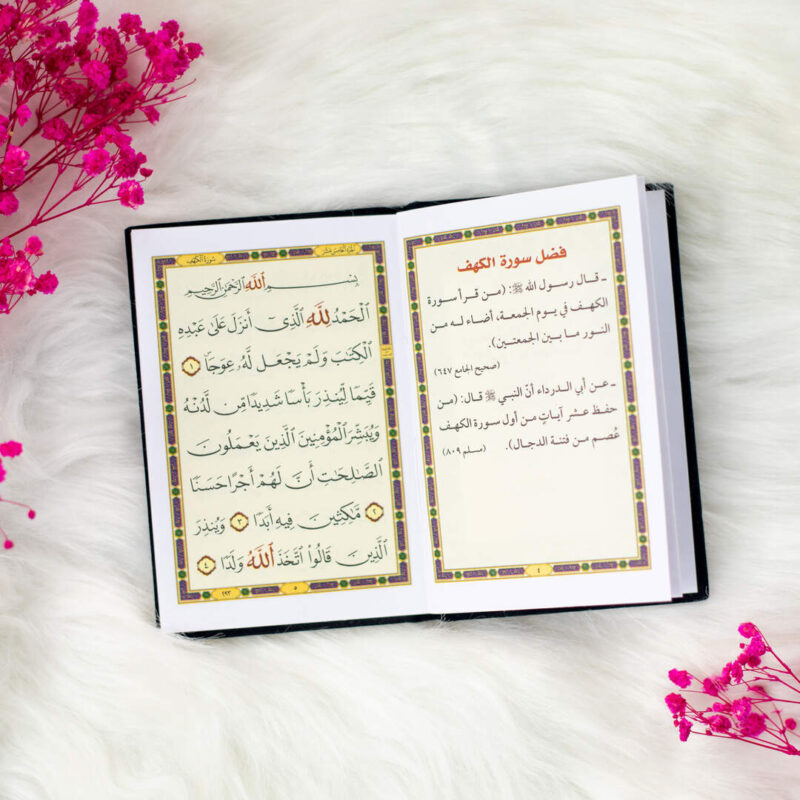 فضل سورة الكهف
ـ قال رسول الله ﷺ: (من قرأ سورة
الكهف في يوم الجمعة، أضاء له من
النور ما بين الجمعتين).
(صحيح الجامع ٦٤٧)
ـ عن أبي الدرداء أنّ النبي ﷺ قال: (من
حفظ عشر آياتٍ من أول سورة الكهف
عُصم من فتنة الدجال). (مسلم ٨٠٩)
٤
الجزء الخامس عشر سورة الكهف
بِسْمِ اللَّهِ الرَّحْمَٰنِ الرَّحِيمِ
ٱلْحَمْدُ لِلَّهِ ٱلَّذِىٓ أَنزَلَ عَلَىٰ عَبْدِهِ
ٱلْكِتَٰبَ وَلَمْ يَجْعَل لَّهُۥ عِوَجَا ١
قَيِّمًا لِّيُنذِرَ بَأْسًا شَدِيدًا مِّن لَّدُنْهُ
وَيُبَشِّرَ ٱلْمُؤْمِنِينَ ٱلَّذِينَ يَعْمَلُونَ
ٱلصَّٰلِحَٰتِ أَنَّ لَهُمْ أَجْرًا حَسَنًا
٢ مَّٰكِثِينَ فِيهِ أَبَدًا ٣ وَيُنذِرَ
ٱلَّذِينَ قَالُوا۟ ٱتَّخَذَ ٱللَّهُ وَلَدًا ٤
٥
٢٩٣